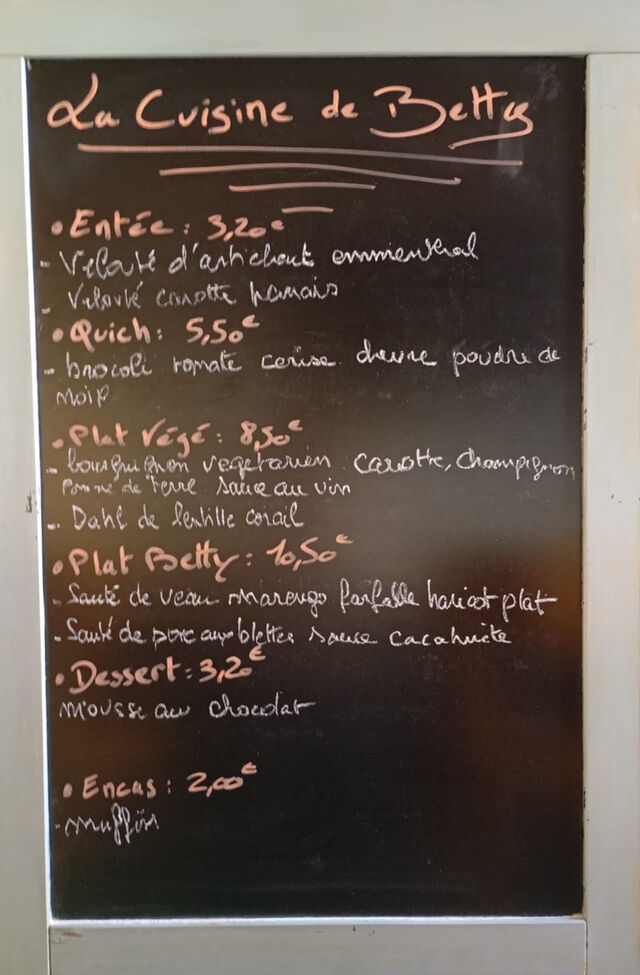 La Cuisine de Betty
• Entée : 3,20€
- Velouté d'artichaut emmenthal
- Velouté carotte panais
• Quich : 5,50€
- brocoli tomate cerise chevre poudre de
noix
• Plat Végé : 8,50€
- bourguignon vegetarien carotte, champignon
Pomme de terre sauce au vin
- Dahl de lentille corail
• Plat Betty : 10,50€
- Sauté de veau marengo farfalle haricot plat
- Sauté de porc aux blettes sauce cacahuète
• Dessert : 3,20€
mousse au chocolat
• Encas : 2,00€
- muffin